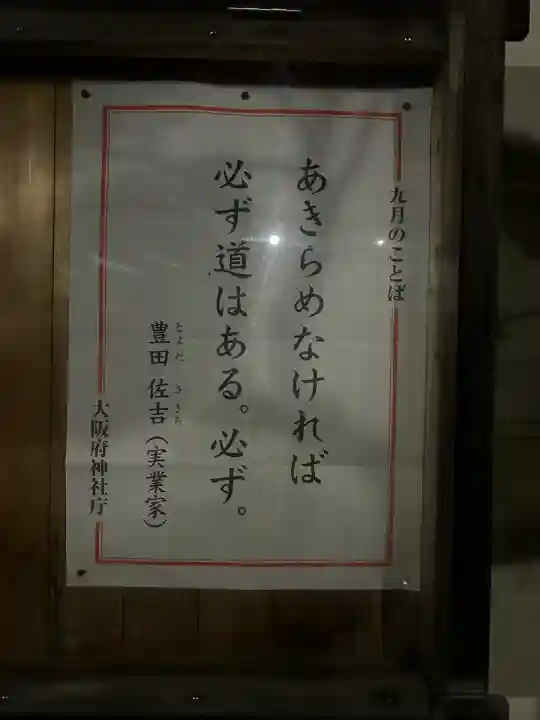 九月のことば
あきらめなければ
必ず道はある。必ず。
豊田佐吉（実業家）
とよだ さきち
大阪府神社庁